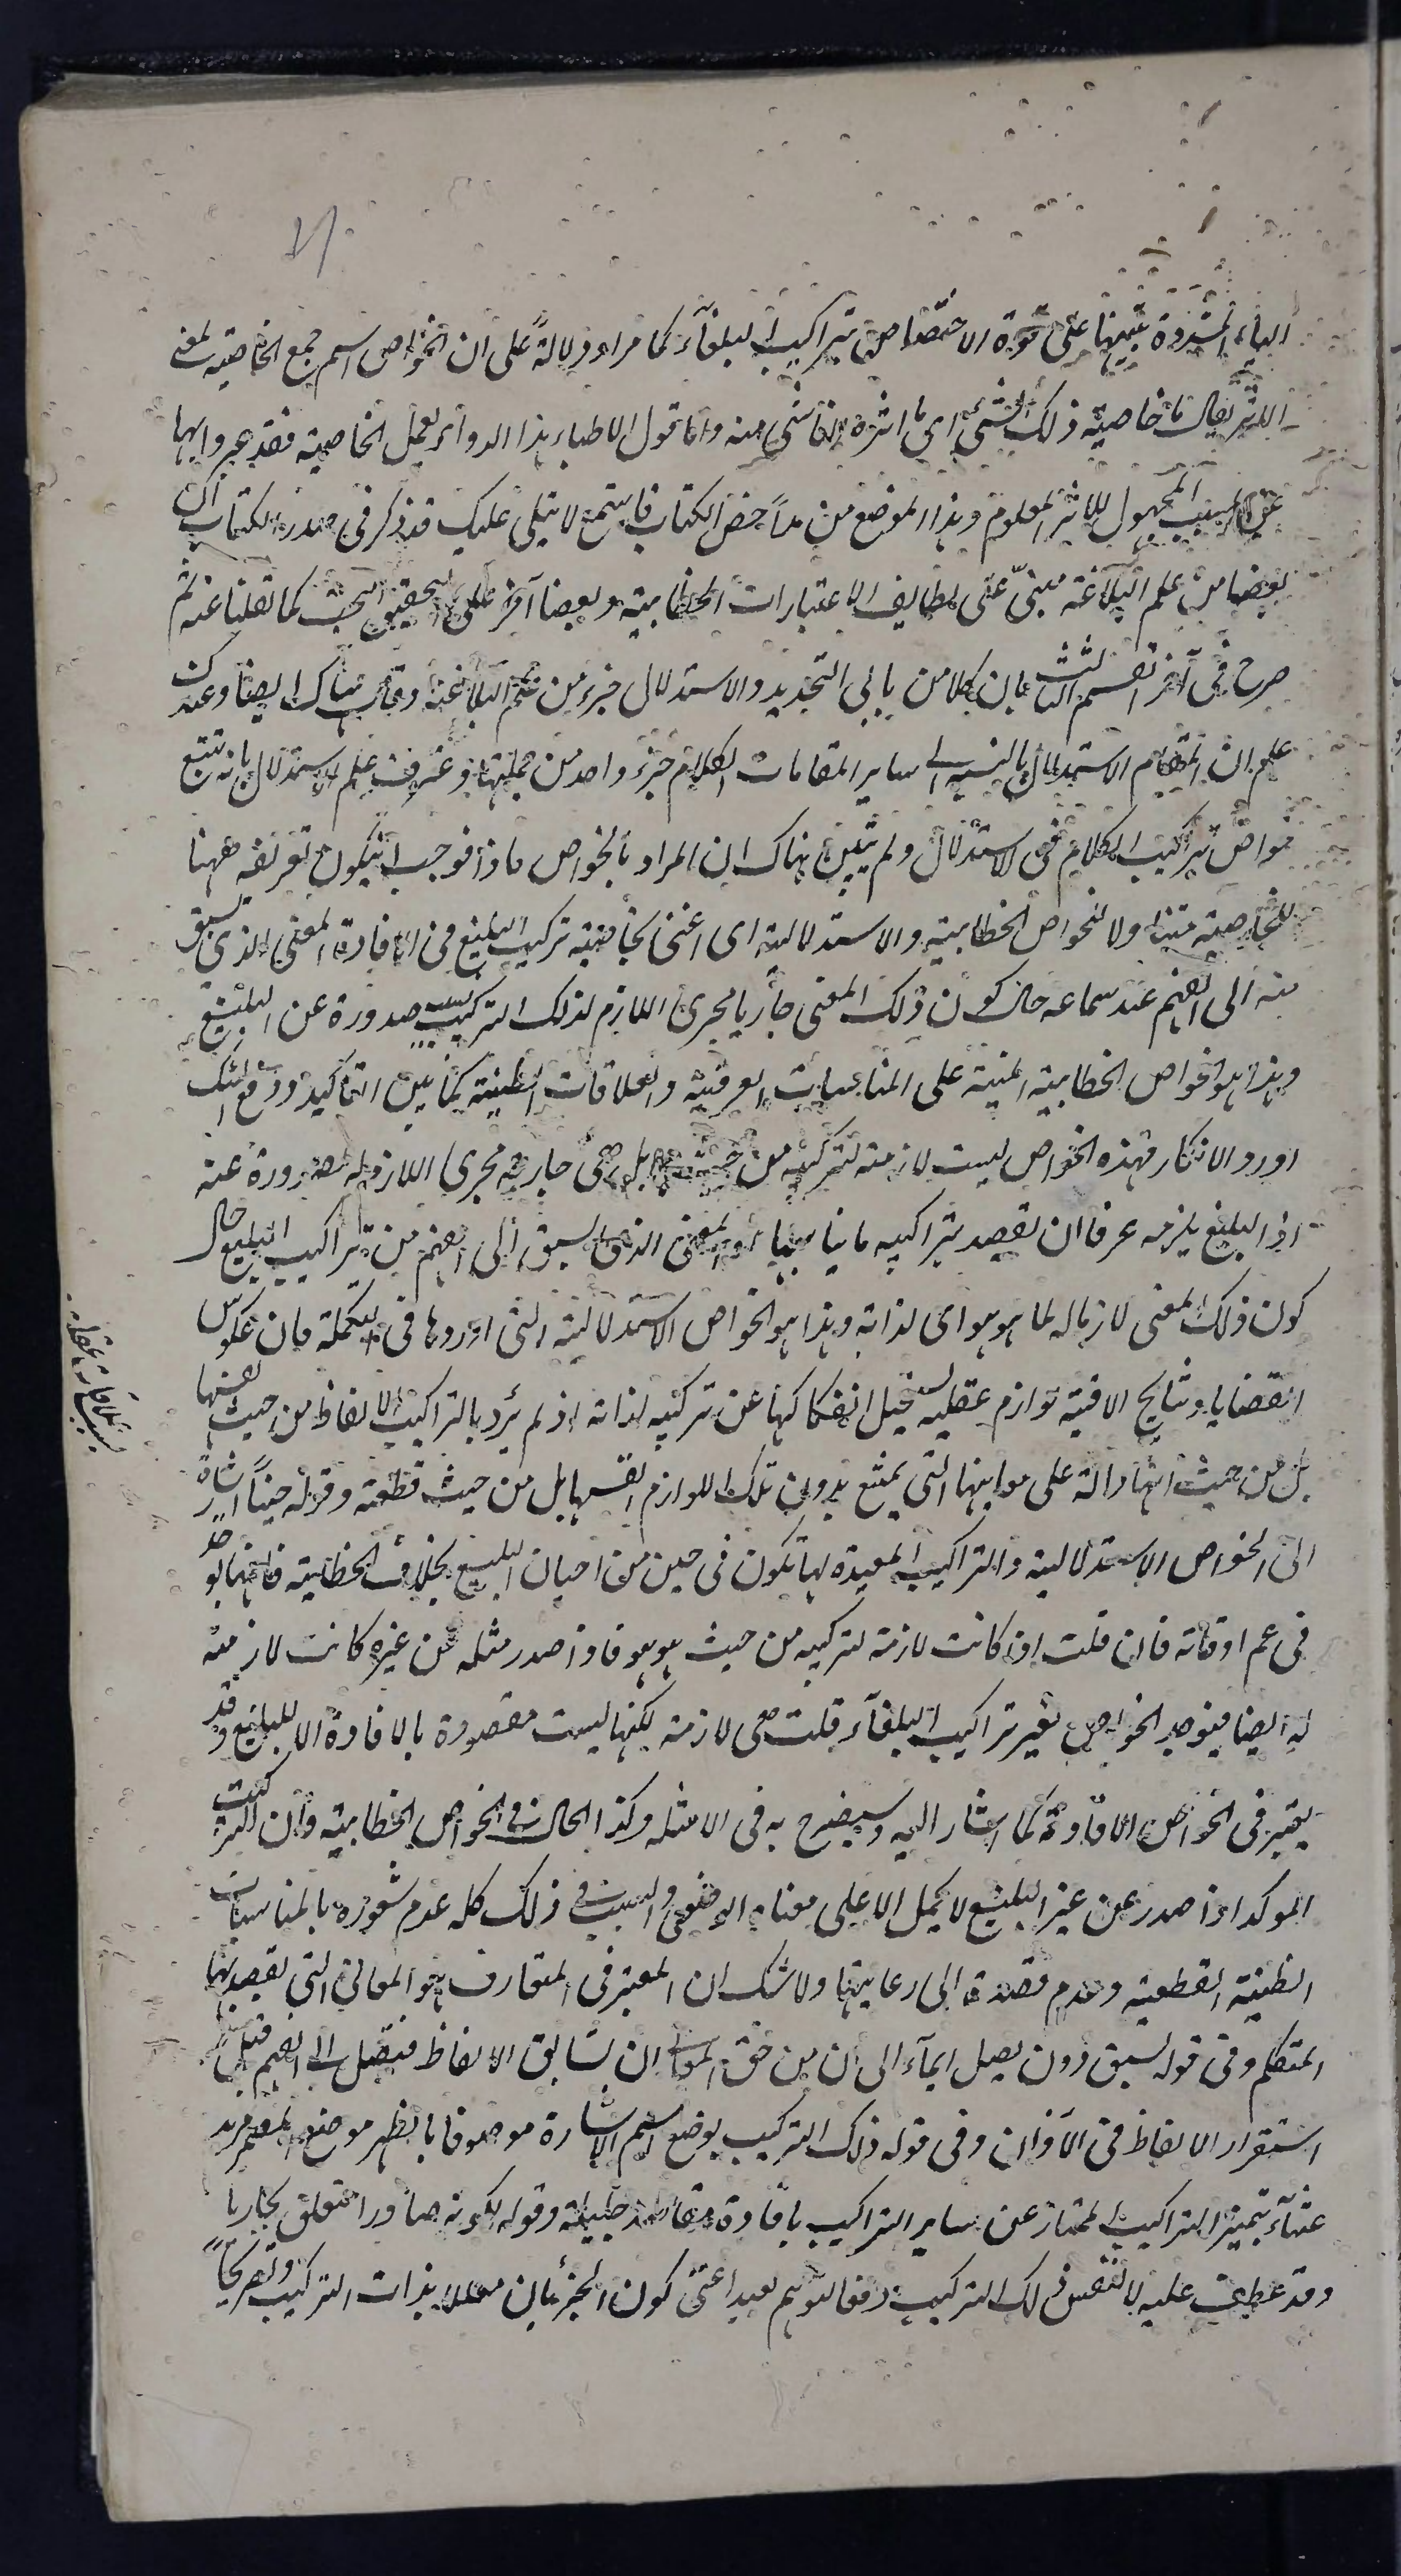 الياء المشددة تنبيها على قوة الاختصاص بتراكيب البلغاء كما مر او دلالة على ان الخواص اسم جمع الخاصية لمعنى
الاثر يقال ما خاصية ذلك الشئ اى ما اثره الناشئ منه واما قول الاطباء هذا الدواء يعمل الخاصية فقد عبروا بها
عن السبب المجهول للاثر المعلوم وهذا الموضع من مداحض الكتاب فاستمع لا يتلى عليك قد ذكر فى صدر الكتاب ان
بعضا من علم البلاغة مبنى على لطايف الاعتبارات الخطابية وبعضا آخر على التحقيق البحث كما نقلنا عنه ثم
صرح فى آخر القسم الثالث بان كلا من بابى التحديد والاستدلال جزء من علم البلاغة وقال هناك ايضا وعندك
علم ان المقام الاستدلال بالنسبة الى ساير المقامات الكلام جزء واحد من جملتها وعرف علم الاستدلال بانه تتبع
خواص تركيب الكلام فى الاستدلال ولم يتبين هناك ان المراد بالخواص ماذا فوجب ان يكون تعريفه ههنا
للخاصية متناولا للخواص الخطابية والاستدلالية اى اعنى بخاصية تركيب البليغ فى الافادة المعنى الذى يسبق
منه الى الفهم عند سماعه حال كون ذلك المعنى جاريا مجرى اللازم لذلك التركيب بسبب صدوره عن البليغ
وهذا هو الخواص الخطابية المبنية على المناسبات العرفية والعلاقات الظنية كما بين التأكيد ودفع الشك
او رد الانكار فهذه الخواص ليست لازمة لتركيبه من حيث بل هى جارية مجرى اللازم له لصدوره عنه
اذ البليغ يلزمه عرفا ان يقصد بتراكيبه ما يناسبها او المعنى الذى يسبق الى الفهم من تراكيب البليغ حال
كون ذلك المعنى لازما له لما هو هو اى لذاته وهذا هو الخواص الاستدلالية التى اوردها فى التكملة فان عكوس
القضايا ونتايج الاقيسة لوازم عقلية يستحيل انفكاكها عن تركيبه لذاته اذ لم يرد بالتراكيب الالفاظ من حيث نفسها
بل من حيث انها دالة على معانيها التى يمتنع بدون تلك اللوازم لنفسها بل من حيث قطعية وقوله حينا اشارة
الى الخواص الاستدلالية والتراكيب المفيدة لها تكون فى حين من احيان البليغ بخلاف الخطابية فانها توجد
فى عم اوقاته فان قلت اذا كانت لازمة لتركيبه من حيث هو هو فاذا صدر مثله عن غيره كانت لازمة
له ايضا فيوجد الخواص لغير تراكيب البلغاء قلت هى لازمة لكنها ليست مقصودة بالافادة الا للبليغ وقد
يعتبر فى الخواص الافادة كما اشار اليه وسيصرح به فى الامثلة وكذا الحال فى الخواص الخطابية وان التركيب
المؤكد اذا صدر عن غير البليغ لا يحمل الا على معناه الوضعى والسبب فى ذلك كله عدم شعوره بالمناسبات
الظنية القطعية وعدم قصده الى رعايتها ولا شك ان المعتبر فى المتعارف هو المعانى التى يقصد بها
المتكلم وفى قوله يسبق دون يصل ايماء الى ان من حق المعانى ان تسابق الالفاظ فيصل الى الفهم قبل
استقرار الالفاظ فى الاذان وفى قوله ذلك التركيب بوضع اسم الاشارة موصوفا بالظهر موضع المضمر مزيد
عتناء بتميز التراكيب الممتاز عن ساير التراكيب بافادة مقاصد جليلة وقوله لكونه صادرا متعلق بجاريا
وقد عطف عليه لا لنفس ذلك التركيب دفعا لتوهم بعيد اعنى كون الجريان معللا بذات التركيب وتصريحا